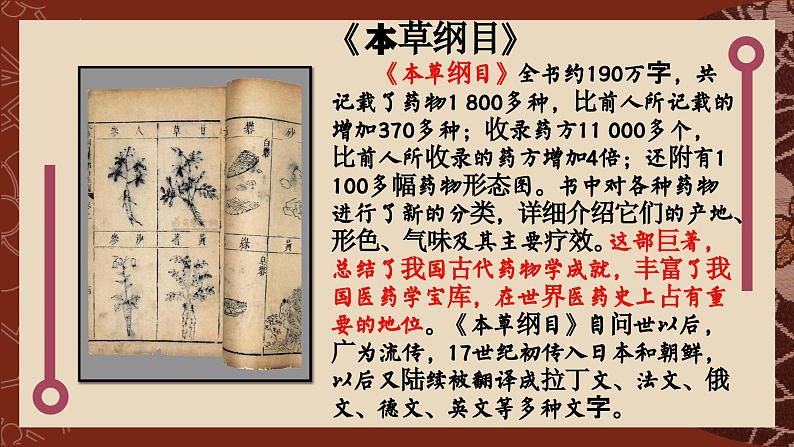 《本草纲目》
《本草纲目》全书约190万字，共
记载了药物1 800多种，比前人所记载的
增加370多种；收录药方11 000多个，
比前人所收录的药方增加4倍；还附有1
100多幅药物形态图。书中对各种药物
进行了新的分类，详细介绍它们的产地、
形色、气味及其主要疗效。这部巨著，
总结了我国古代药物学成就，丰富了我
国医药学宝库，在世界医药史上占有重
要的地位。《本草纲目》自问世以后，
广为流传，17世纪初传入日本和朝鲜，
以后又陆续被翻译成拉丁文、法文、俄
文、德文、英文等多种文字。
參人
草甘
礬
白礬
參沙
耆黃
綠
皂礬